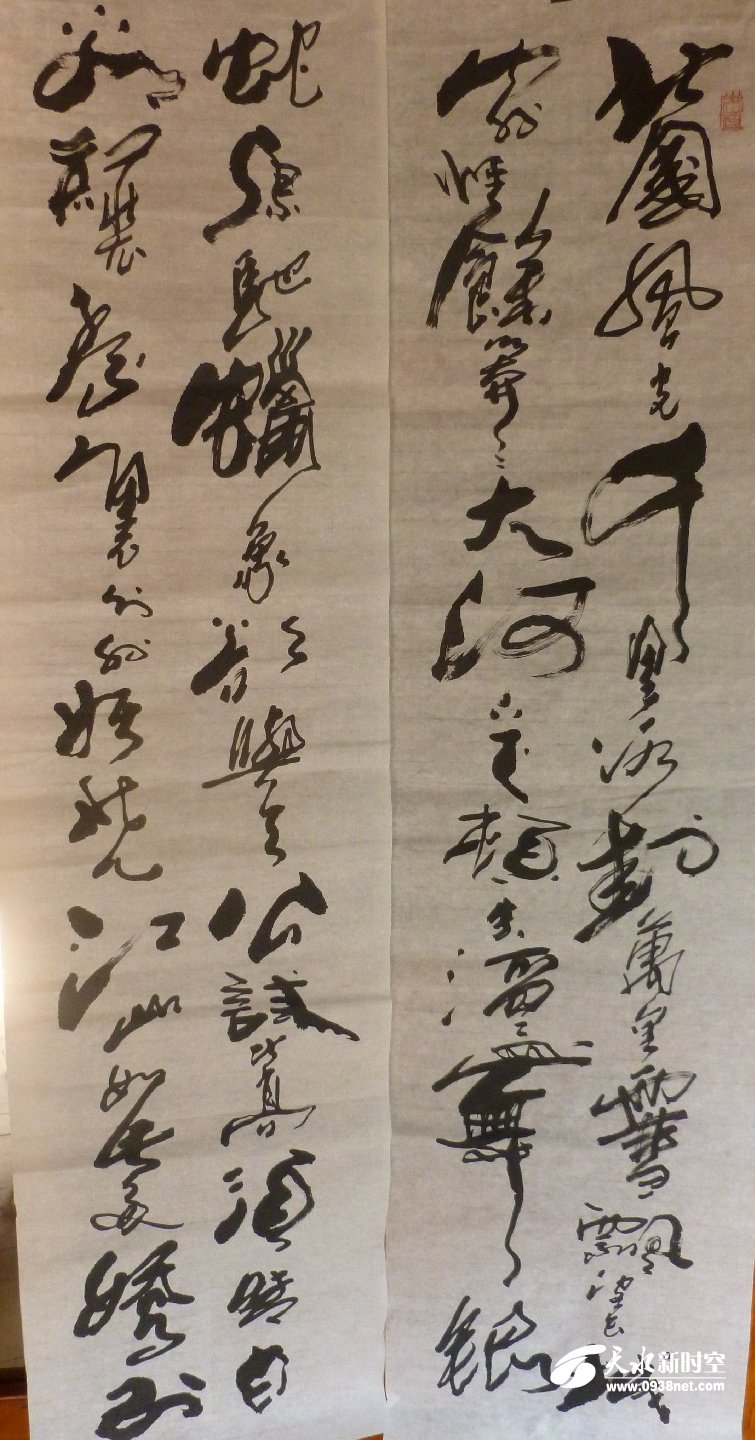 北國風光千里冰封萬里雪飄望長城
內外惟餘莽〻大河上下頓失滔〻山舞銀
蛇原馳蠟象欲與天公試比高須晴日
看紅裝素裹分外妖嬈江山如此多嬌引
天水新时空
www.0938net.com